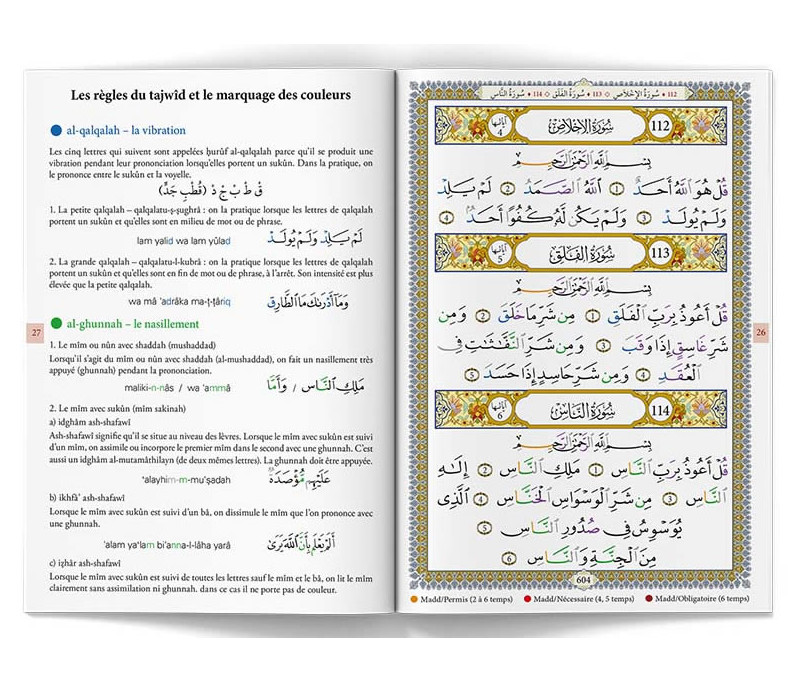 Les règles du tajwîd et le marquage des couleurs
al-qalqalah – la vibration
Les cinq lettres qui suivent sont appelées ḥurûf al-qalqalah parce qu'il se produit une
vibration pendant leur prononciation lorsqu'elles portent un sukûn. Dans la pratique, on
le prononce entre le sukûn et la voyelle.
ق ط ب ج د (قُطْبِ جَدٍّ)
1. La petite qalqalah – qalqalatu-ṣ-ṣughrâ : on la pratique lorsque les lettres de qalqalah
portent un sukûn et qu'elles sont en milieu de mot ou de phrase.
lam yalid wa lam yûlad لَمْ يَـلِدْ وَلَـمْ يُولَـدْ
2. La grande qalqalah – qalqalatu-l-kubrâ : on la pratique lorsque les lettres de qalqalah
portent un sukûn et qu'elles sont en fin de mot ou de phrase, à l'arrêt. Son intensité est plus
élevée que la petite qalqalah.
wa mâ 'adrâka ma-ṭ-ṭâriq وَمَآ أَدْرَىٰكَ مَا ٱلطَّارِقِ
al-ghunnah – le nasillement
1. Le mîm ou nûn avec shaddah (mushaddad)
Lorsqu'il s'agit du mîm ou nûn avec shaddah (al-mushaddad), on fait un nasillement très
appuyé (ghunnah) pendant la prononciation.
maliki-n-nâs / wa 'ammâ مَلِكِ ٱلنَّـاسِ / وَأَمَّا
2. Le mîm avec sukûn (mîm sakinah)
a) idghâm ash-shafawî
Ash-shafawî signifie qu'il se situe au niveau des lèvres. Lorsque le mîm avec sukun est suivi
d'un mîm, on assimile ou incorpore le premier mîm dans le second avec une ghunnah. C'est
aussi un idghâm al-mutamâthilayn (de deux mêmes lettres). La ghunnah doit être appuyée.
'alayhim-m-mu'ṣadah عَلَيْهِم مُّؤْصَدَةٌ
b) ikhfâ' ash-shafawî
Lorsque le mîm avec sukun est suivi d'un bâ, on dissimule le mîm que l'on prononce avec
une ghunnah.
'alam ya'lam bi'anna-l-lâha yarâ أَلَمْ يَعْلَم بِأَنَّ ٱللَّهَ يَرَىٰ
c) iẓhâr ash-shafawî
Lorsque le mîm avec sukun est suivi de toutes les lettres sauf le mîm et le bâ, on lit le mîm
clairement sans assimilation ni ghunnah. dans ce cas il ne porte pas de couleur.
27
112 ♦ سُورَةُ الإِخْلَاصِ ◇ 113 ♦ سُورَةُ الْفَلَقِ ◇ 114 ♦ سُورَةُ النَّاسِ
112 سُورَةُ الإِخْلَاصِ آياتها 4
بِسْمِ ٱللَّهِ ٱلرَّحْمَٰنِ ٱلرَّحِيمِ
قُلْ هُوَ ٱللَّهُ أَحَـدٌ ① ٱللَّهُ ٱلصَّـمَدُ ② لَمْ يَـلِدْ
وَلَـمْ يُولَـدْ ③ وَلَمْ يَكُن لَّهُۥ كُفُوًا أَحَـدٌۢ ④
113 سُورَةُ الْفَلَقِ آياتها 5
بِسْمِ ٱللَّهِ ٱلرَّحْمَٰنِ ٱلرَّحِيمِ
قُلْ أَعُوذُ بِرَبِّ ٱلْفَـلَقِ ① مِن شَرِّ مَا خَلَقَ ② وَمِن
شَرِّ غَاسِقٍ إِذَا وَقَبَ ③ وَمِن شَـرِّ ٱلنَّفَّٰثَٰتِ فِى
ٱلْعُقَـدِ ④ وَمِن شَـرِّ حَاسِدٍ إِذَا حَسَدَ ⑤
114 سُورَةُ النَّاسِ آياتها 6
بِسْمِ ٱللَّهِ ٱلرَّحْمَٰنِ ٱلرَّحِيمِ
قُلْ أَعُوذُ بِرَبِّ ٱلنَّـاسِ ① مَلِكِ ٱلنَّـاسِ ② إِلَٰـهِ
ٱلنَّـاسِ ③ مِن شَـرِّ ٱلْوَسْوَاسِ ٱلْخَنَّـاسِ ④ ٱلَّذِى
يُوَسْوِسُ فِى صُدُورِ ٱلنَّـاسِ ⑤
مِنَ ٱلْجِنَّـةِ وَٱلنَّـاسِ ⑥
604
26
Madd/Permis (2 à 6 temps) Madd/Nécessaire (4, 5 temps) Madd/Obligatoire (6 temps)